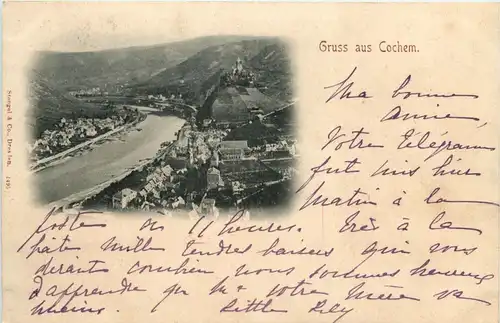 Gruss aus Cochem.
Stengel & Co., Dresden
Ma bonne
Amie,
Votre Télégramme
fut mis hier
Matin à la
poste à 11 heures. Très à la
hâte mille tendres baisers qui vous
diront combien nous sommes heureux
d'apprendre que Mr Votre
Little Lily